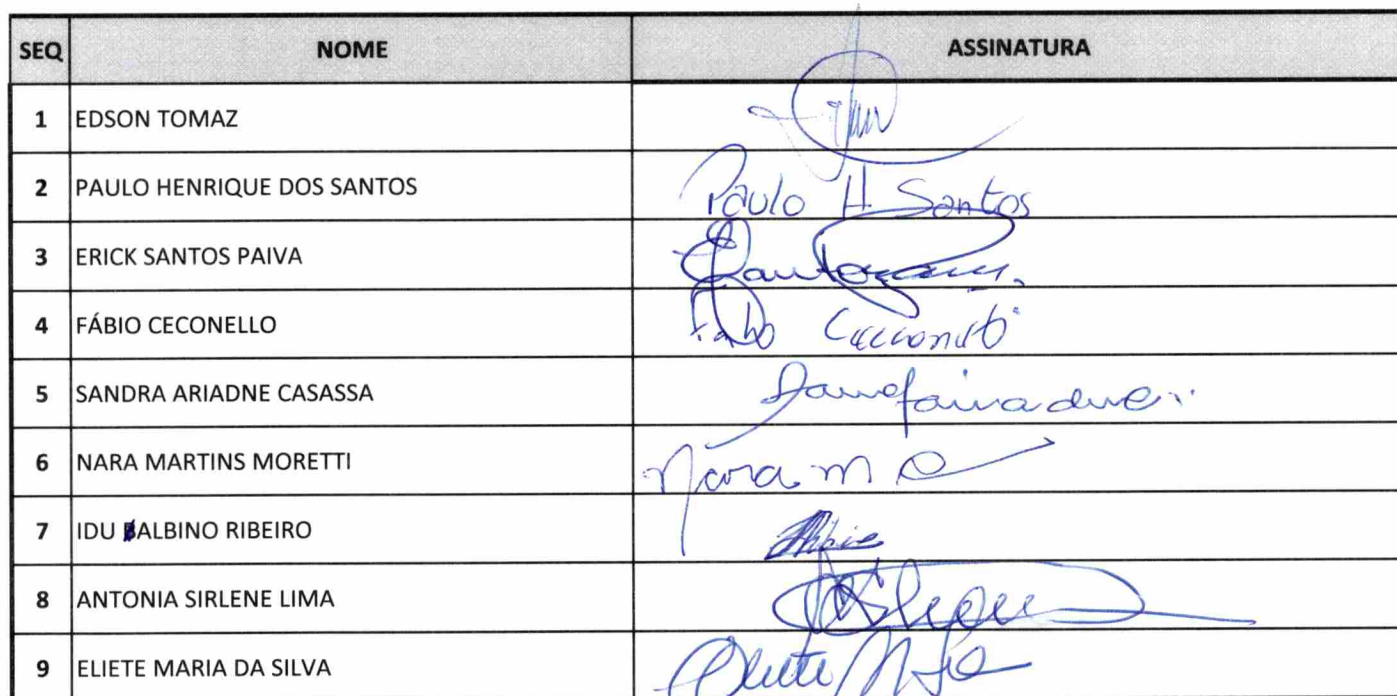 SEQ NOME ASSINATURA
1 EDSON TOMAZ
2 PAULO HENRIQUE DOS SANTOS Paulo H Santos
3 ERICK SANTOS PAIVA
4 FÁBIO CECONELLO
5 SANDRA ARIADNE CASASSA
6 NARA MARTINS MORETTI Nara m
7 IDU ALBINO RIBEIRO
8 ANTONIA SIRLENE LIMA
9 ELIETE MARIA DA SILVA Eliete